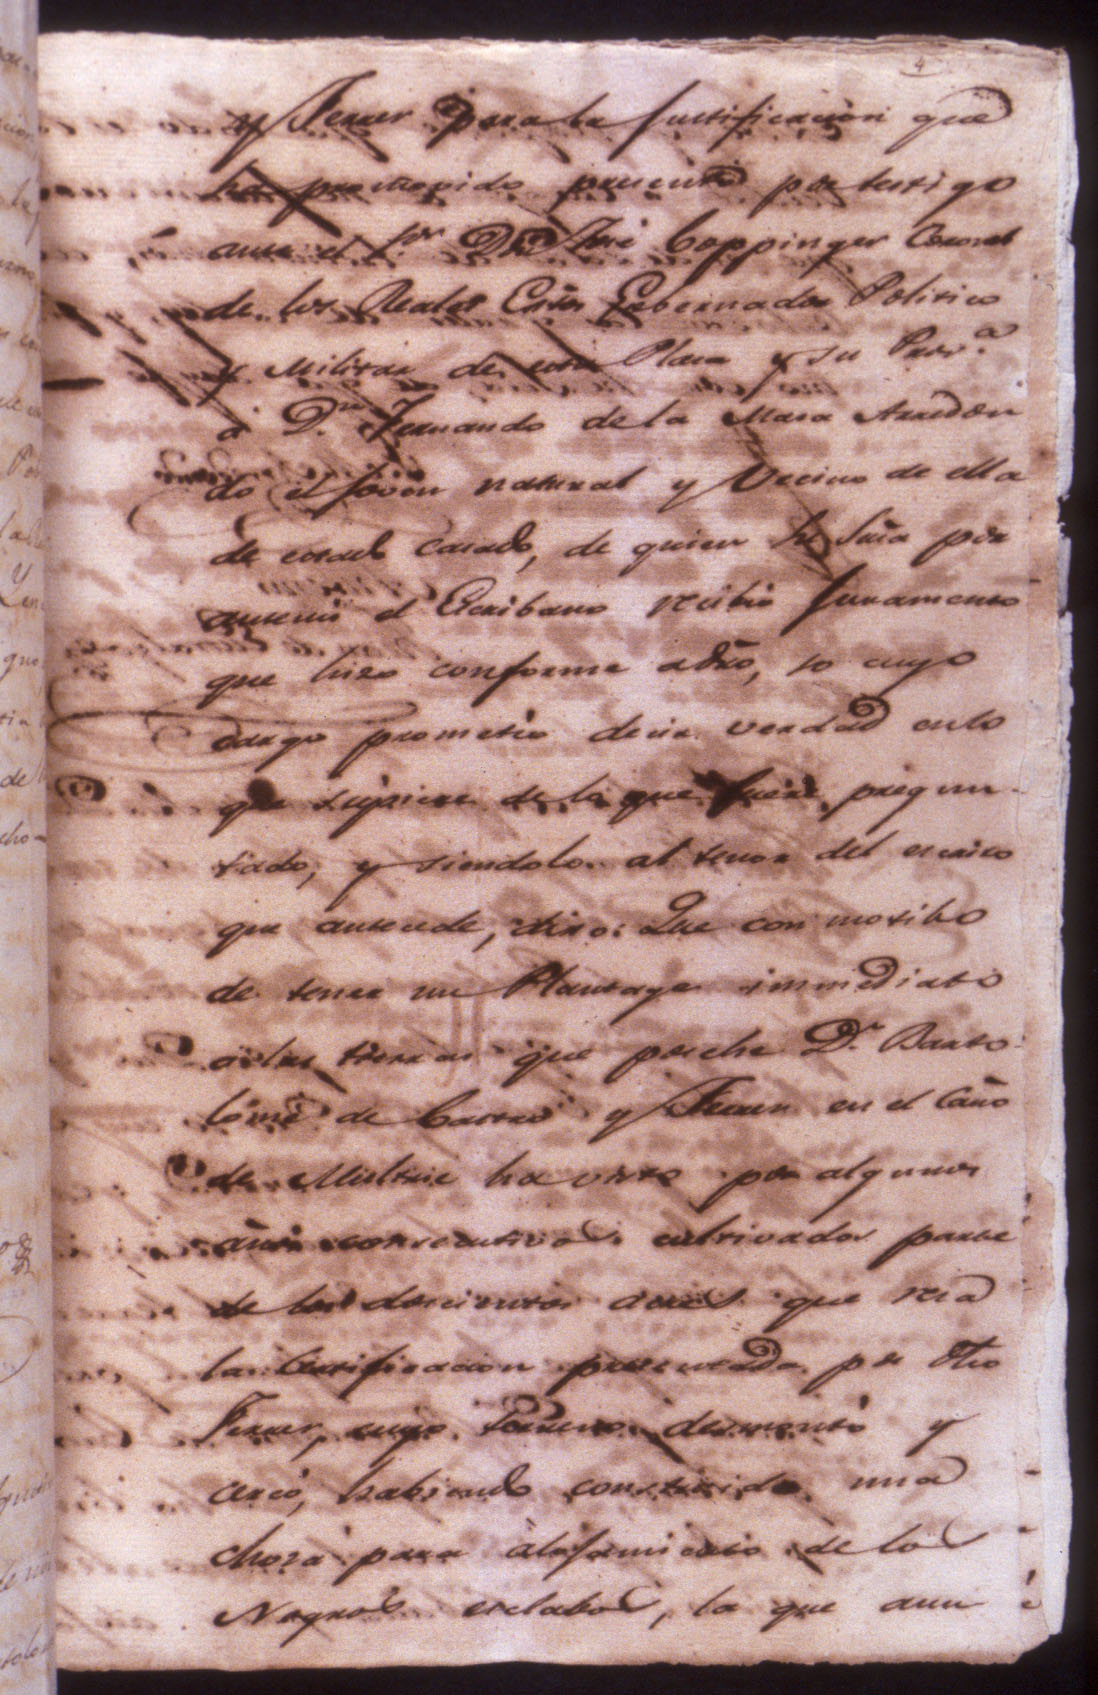 4
y Ferrer para la justificacion que
ha promovido presento por testigo
ante el S.or Dn José Coppinger Coronel
de los Reales Extos Gobernador Politico
y Militar de esta Plaza y su Prov.a
a D.n Fernando de la Masa Arredon
do el joven natural y vecino de ella
de estado casado, de quien su Sria por
antemi el Escribano recibió juramento
que hizo conforme a dro, so cuyo
cargo prometió decir verdad en lo
que supiere de lo que fuere pregun-
tado, y siendolo al tenor del escrito
que antecede, dixo: Que con motibo
de tener un Plantage immediato
a las tierras que posehe D.n Barto-
lomé de Castro y Ferrer en el Caño
de Multrie ha visto por algunos
años consecutivos cultivados parte
de los doscientos acres que reza
la certificacion presentada por dho
Ferrer, cuyo terreno desmontó y
cercó, habiendo construido una
choza para alojamiento de los
Negros esclabos, la que aun